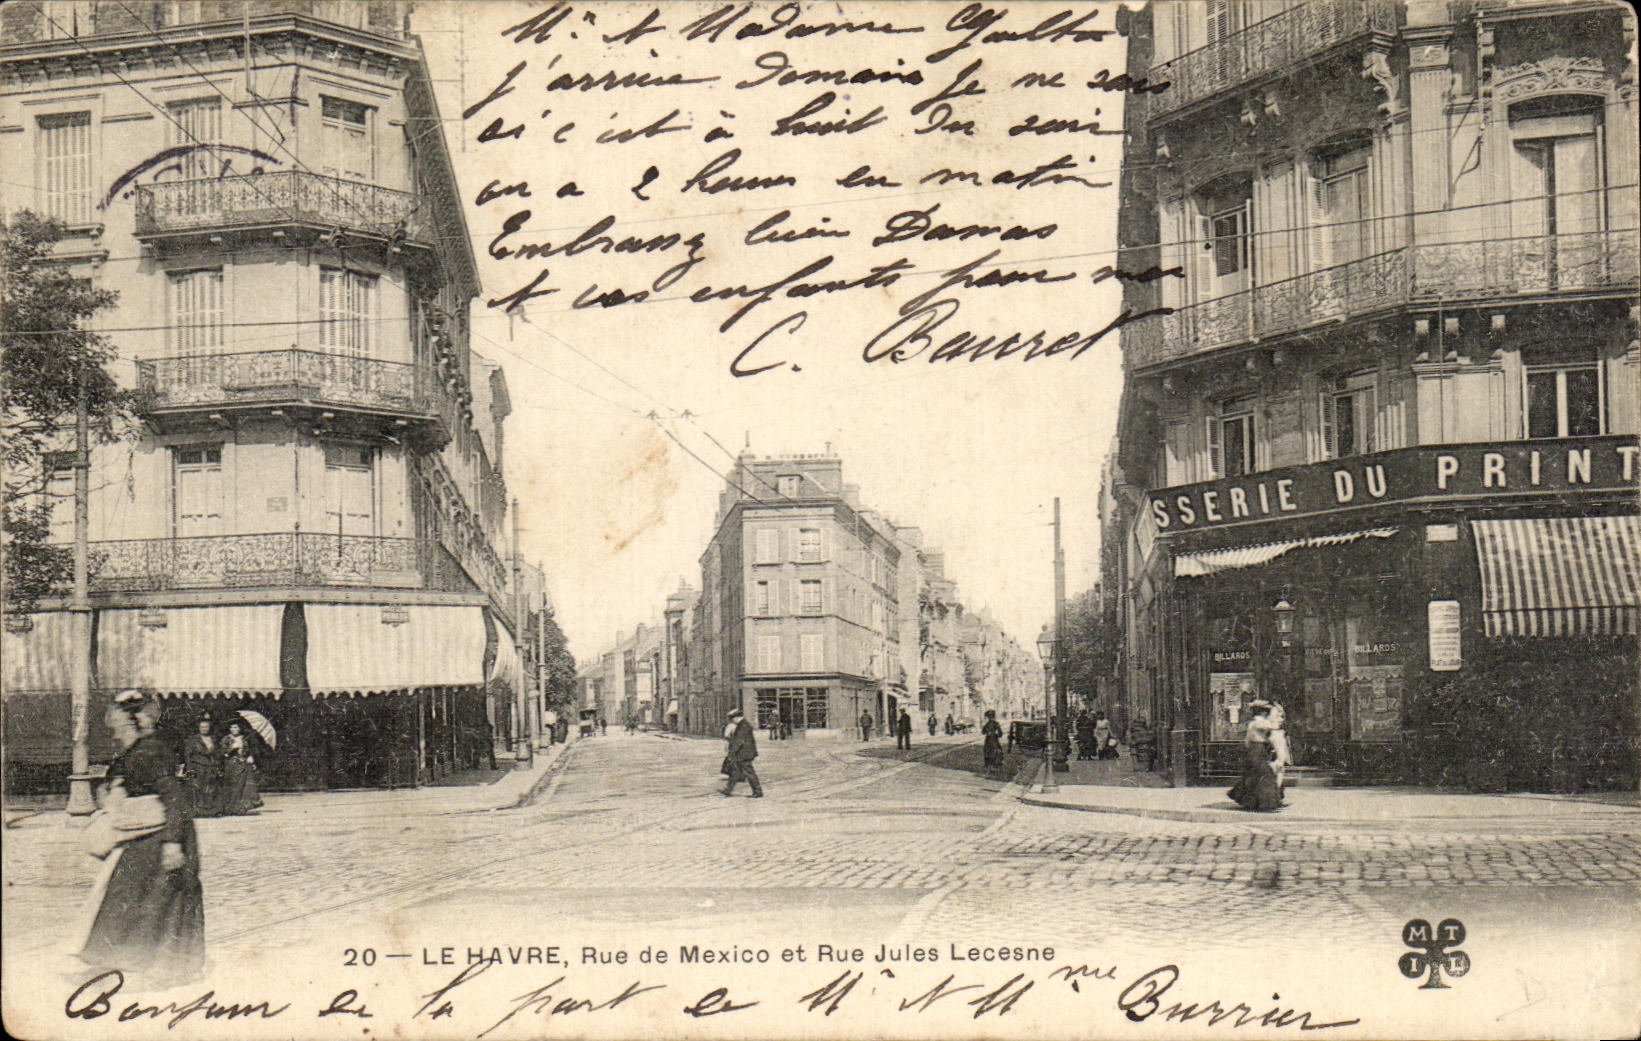 Mr et Madame
j'arrive Domain je ne sais
si c'est à huit Du soir
ou a 2 heures en matin
Embrassez bien Damas
et vos enfants pour moi
C. Bauret
SSERIE DU PRINT
BILLARDS
BILLARDS
20 — LE HAVRE, Rue de Mexico et Rue Jules Lecesne
MTIL
Bonjour de la part de Mr et Mme Burrier